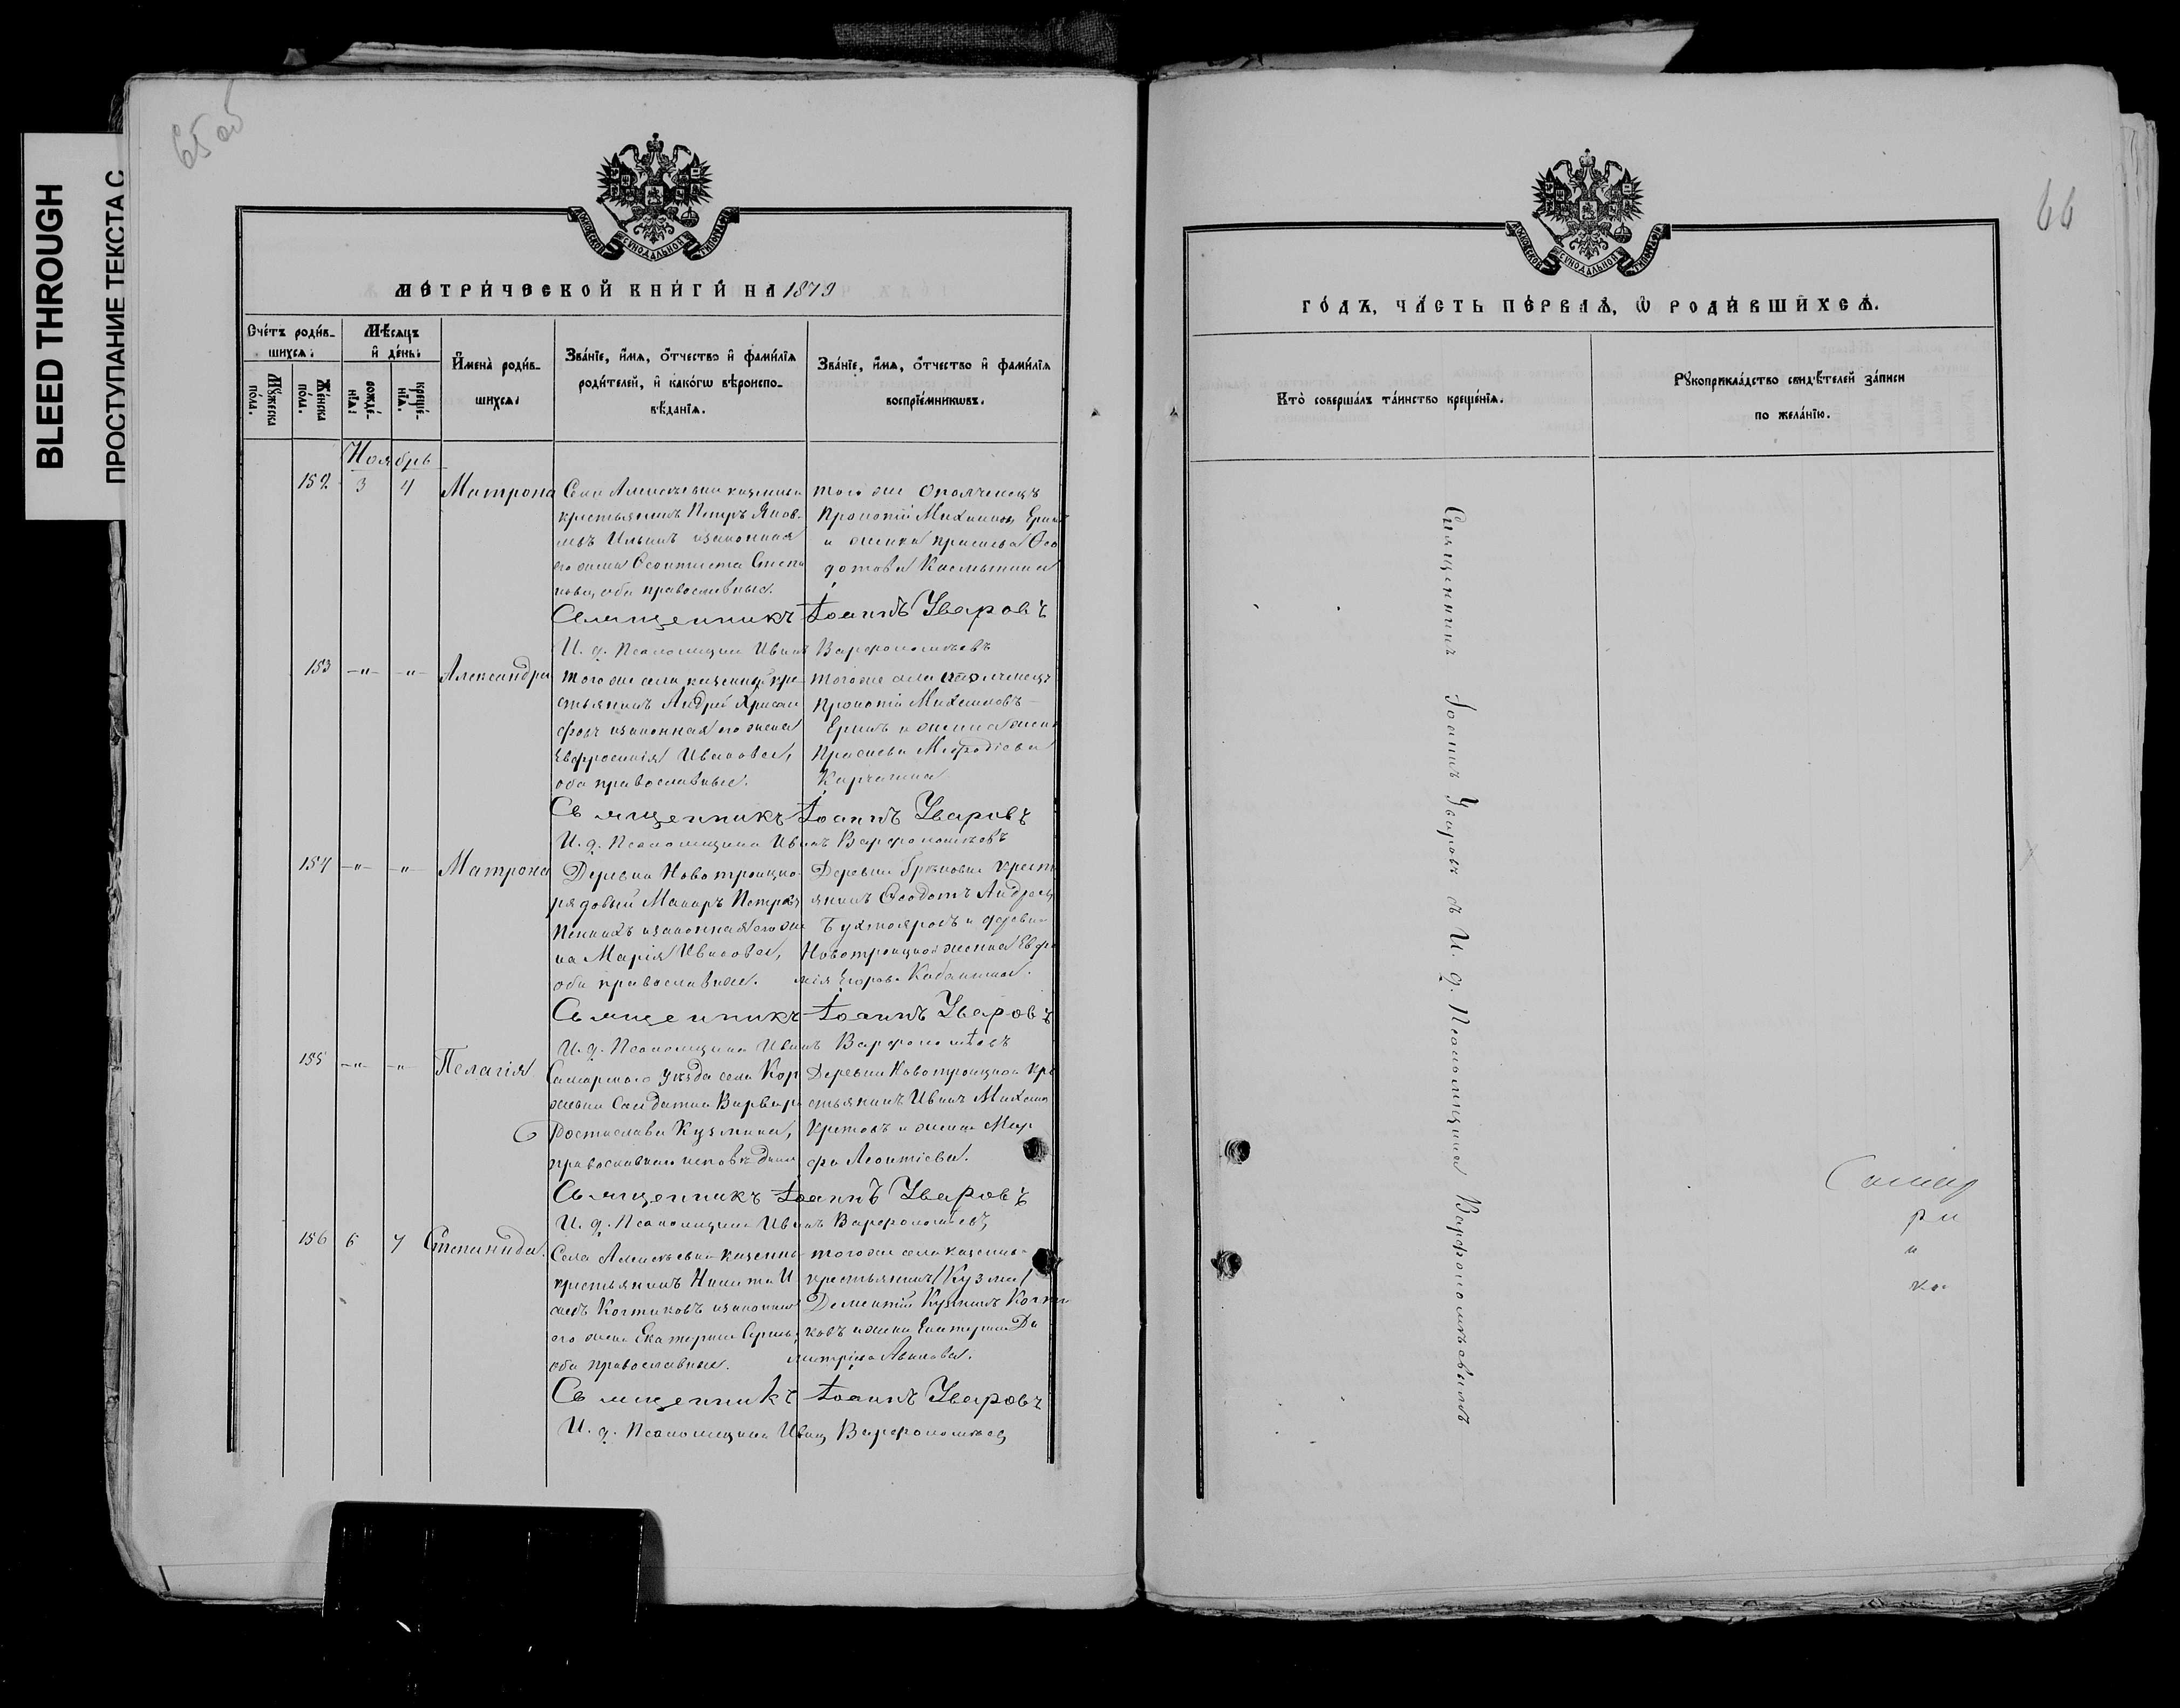 BLEED THROUGH
ПРОСТУПАНИЕ ТЕКСТА С
65 об
МОСКОВСКОЙ СѴНОДАЛЬНОЙ ТИПОГРАФІИ
МЕТРИЧЕСКОЙ КНИГИ НА 1879
Счетъ родившихся:
Мужеска пола.
Женска пола.
Мѣсяцъ и день:
рожденія:
крещенія.
Имена родившихся:
Званіе, имя, отчество и фамилія родителей, и какого вѣроисповѣданія.
Званіе, имя, отчество и фамилія воспріемниковъ.
Ноябрь
152 3 4 Матрона
Села Алексѣевки казенный
крестьянинъ Петръ Яков-
левъ Ильинъ и законная
его жена Феоктиста Степа
нова, оба православные.
того же Ополченецъ
Прокопій Михаиловъ
и женка Праскева Фео
дотова
Священникъ Іоаннъ Уваровъ
И. д. Псаломщика Иванъ Варфоломѣевъ
153 -"- -"- Александра
того же села казенный кре-
стьянинъ Андрей Хрисан
фовъ и законная его жена
Евфросинія Иванова,
оба православные.
того же села ополченецъ
Прокопій Михаиловъ
Праскева Мефодіева
Священникъ Іоаннъ Уваровъ
И. д. Псаломщика Иванъ Варфоломѣевъ
154 -"- -"- Матрона
Деревни Новотроицкой
рядовый Макаръ Петровъ
и законная его же
на Марія Иванова,
оба православные.
Деревни крест
янинъ Феодотъ Андреевъ
и деревни
Новотроицкой женка Евфи
мія Егорова
Священникъ Іоаннъ Уваровъ
И. д. Псаломщика Иванъ Варфоломѣевъ
155 -"- -"- Пелагія
Самарскаго уѣзда села Кор
жевки Солдатка Варвара
Ростислава Кузмина,
православнаго исповѣданія
Деревни Новотроицкой кре
стьянинъ Иванъ Михаил
Кретовъ и женка Мар
фа Леонтіева.
Священникъ Іоаннъ Уваровъ
И. д. Псаломщика Иванъ Варфоломѣевъ
156 6 7 Степанида.
Села Алексѣевки казенный
крестьянинъ Никита И
Костиковъ и законная
его жена Екатерина Сергѣ
оба православные.
того же села казенный
крестьянинъ (Кузма)
Дементій Кузминъ Кости
ковъ и женка Екатерина Ди
митріева
Священникъ Іоаннъ Уваровъ
И. д. Псаломщика Иванъ Варфоломѣевъ
66
МОСКОВСКОЙ СѴНОДАЛЬНОЙ ТИПОГРАФІИ
ГОДЪ, ЧАСТЬ ПЕРВАЯ, Ѡ РОДИВШИХСЯ.
Кто совершалъ таинство крещенія.
Рукоприкладство свидѣтелей записи по желанію.
Священникъ Іоаннъ Уваровъ съ И. д. Псаломщика Варфоломѣевымъ
Самар